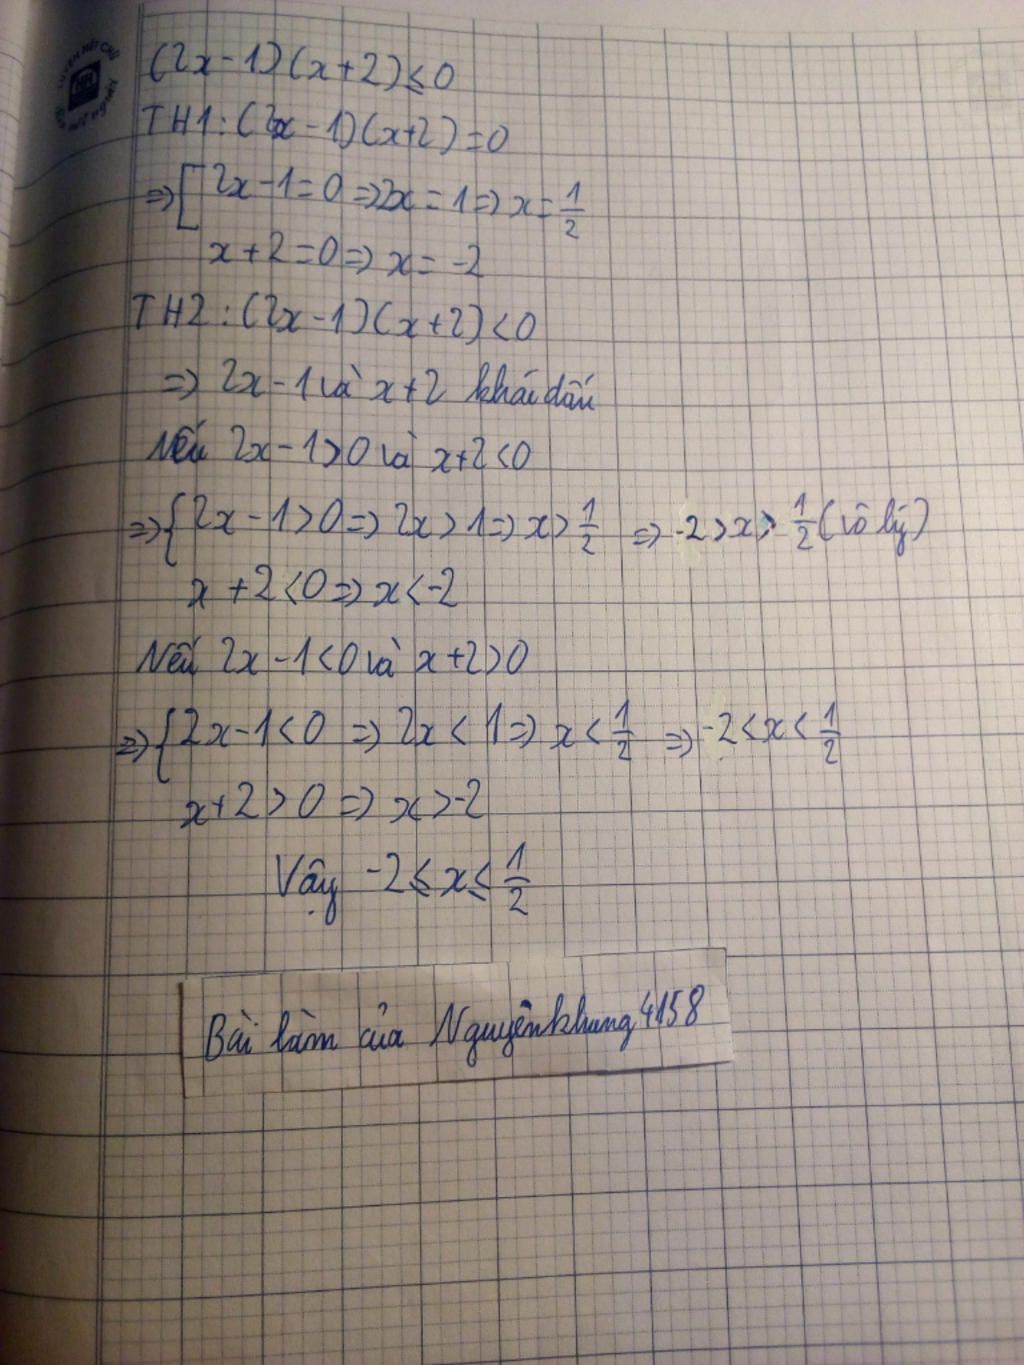 (2x-1)(x+2)≤0
TH1:(2x-1)(x+2)=0
=>[2x-1=0=>2x=1=>x=1/2
x+2=0=>x=-2
TH2:(2x-1)(x+2)<0
=> 2x-1 và x+2 khái dấu
Nếu 2x-1>0 và x+2<0
=>{2x-1>0=>2x>1=>x>1/2 => -2>x>1/2 (vô lý)
x+2<0=>x<-2
Nếu 2x-1<0 và x+2>0
=>{2x-1<0 => 2x<1=> x<1/2 => -2<x<1/2
x+2>0 => x>-2
Vậy -2≤x≤1/2
Bài làm của Nguyênkhang4158